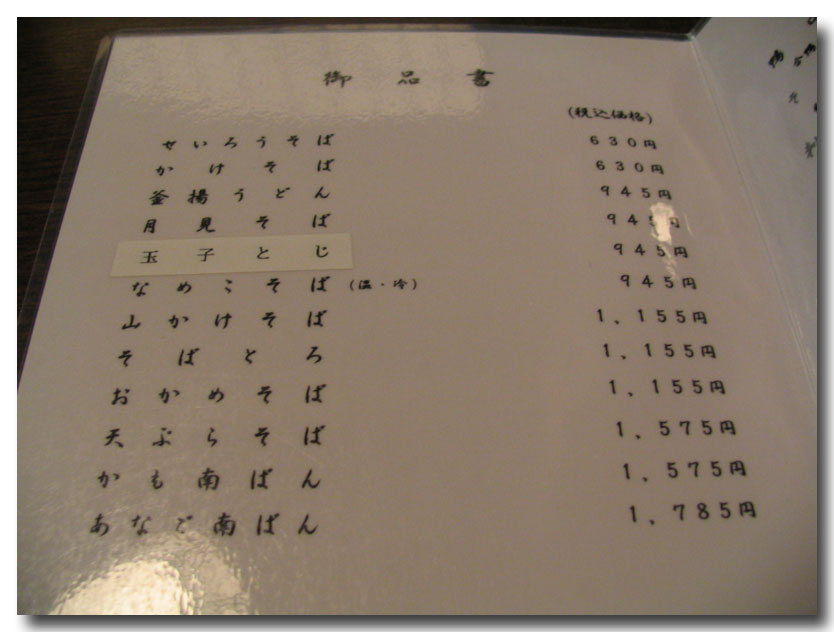 御品書
(税込価格)
せいろうそば 630円
かけそば 630円
釜揚うどん 945円
月見そば 945円
玉子とじ 945円
なめこそば (温・冷) 945円
山かけそば 1,155円
そばとろ 1,155円
おかめそば 1,155円
天ぷらそば 1,575円
かも南ばん 1,575円
あなご南ばん 1,785円